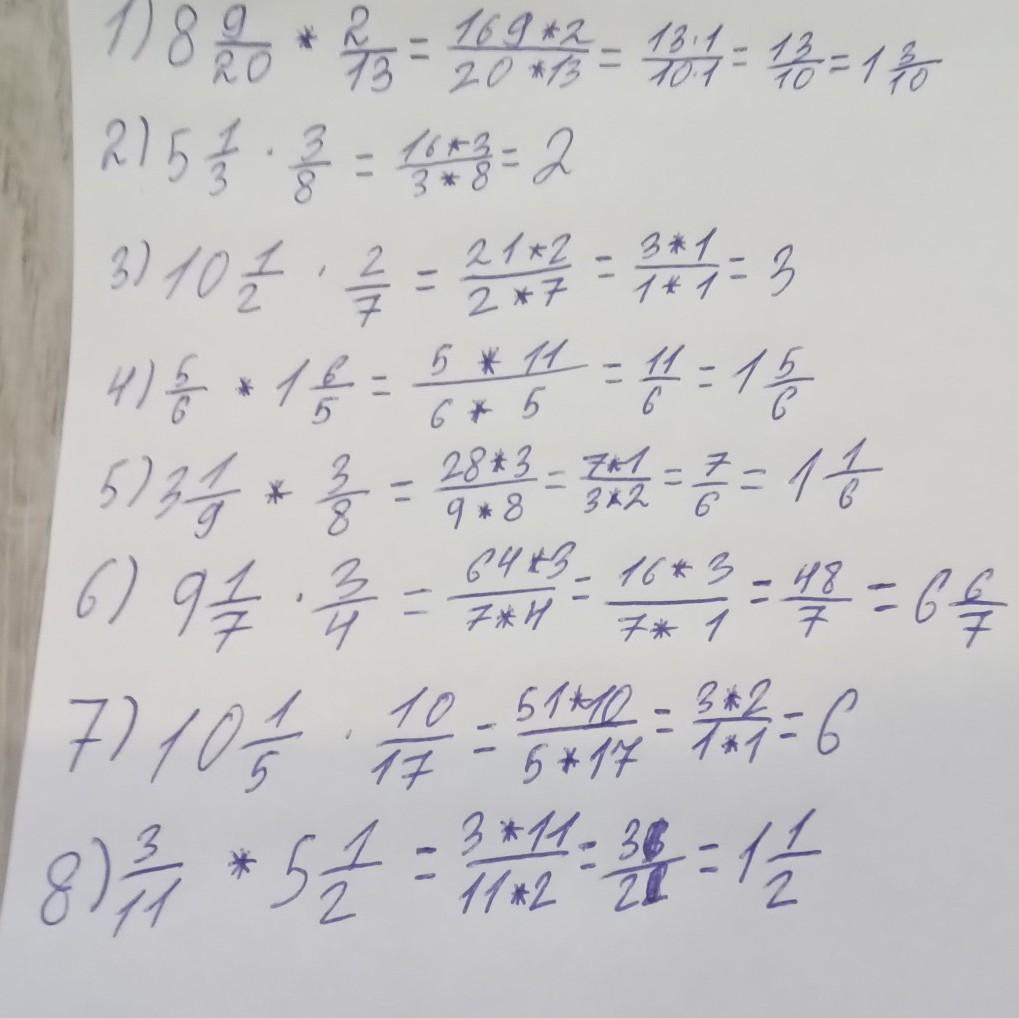 1) 8 9/20 * 2/13 = 169*2/20*13 = 13·1/10·1 = 13/10 = 1 3/10
2) 5 1/3 · 3/8 = 16*3/3*8 = 2
3) 10 1/2 · 2/7 = 21*2/2*7 = 3*1/1*1 = 3
4) 5/6 * 1 6/5 = 5*11/6*5 = 11/6 = 1 5/6
5) 3 1/9 * 3/8 = 28*3/9*8 = 7*1/3*2 = 7/6 = 1 1/6
6) 9 1/7 · 3/4 = 64*3/7*4 = 16*3/7*1 = 48/7 = 6 6/7
7) 10 1/5 · 10/17 = 51*10/5*17 = 3*2/1*1 = 6
8) 3/11 * 5 1/2 = 3*11/11*2 = 3/2 = 1 1/2